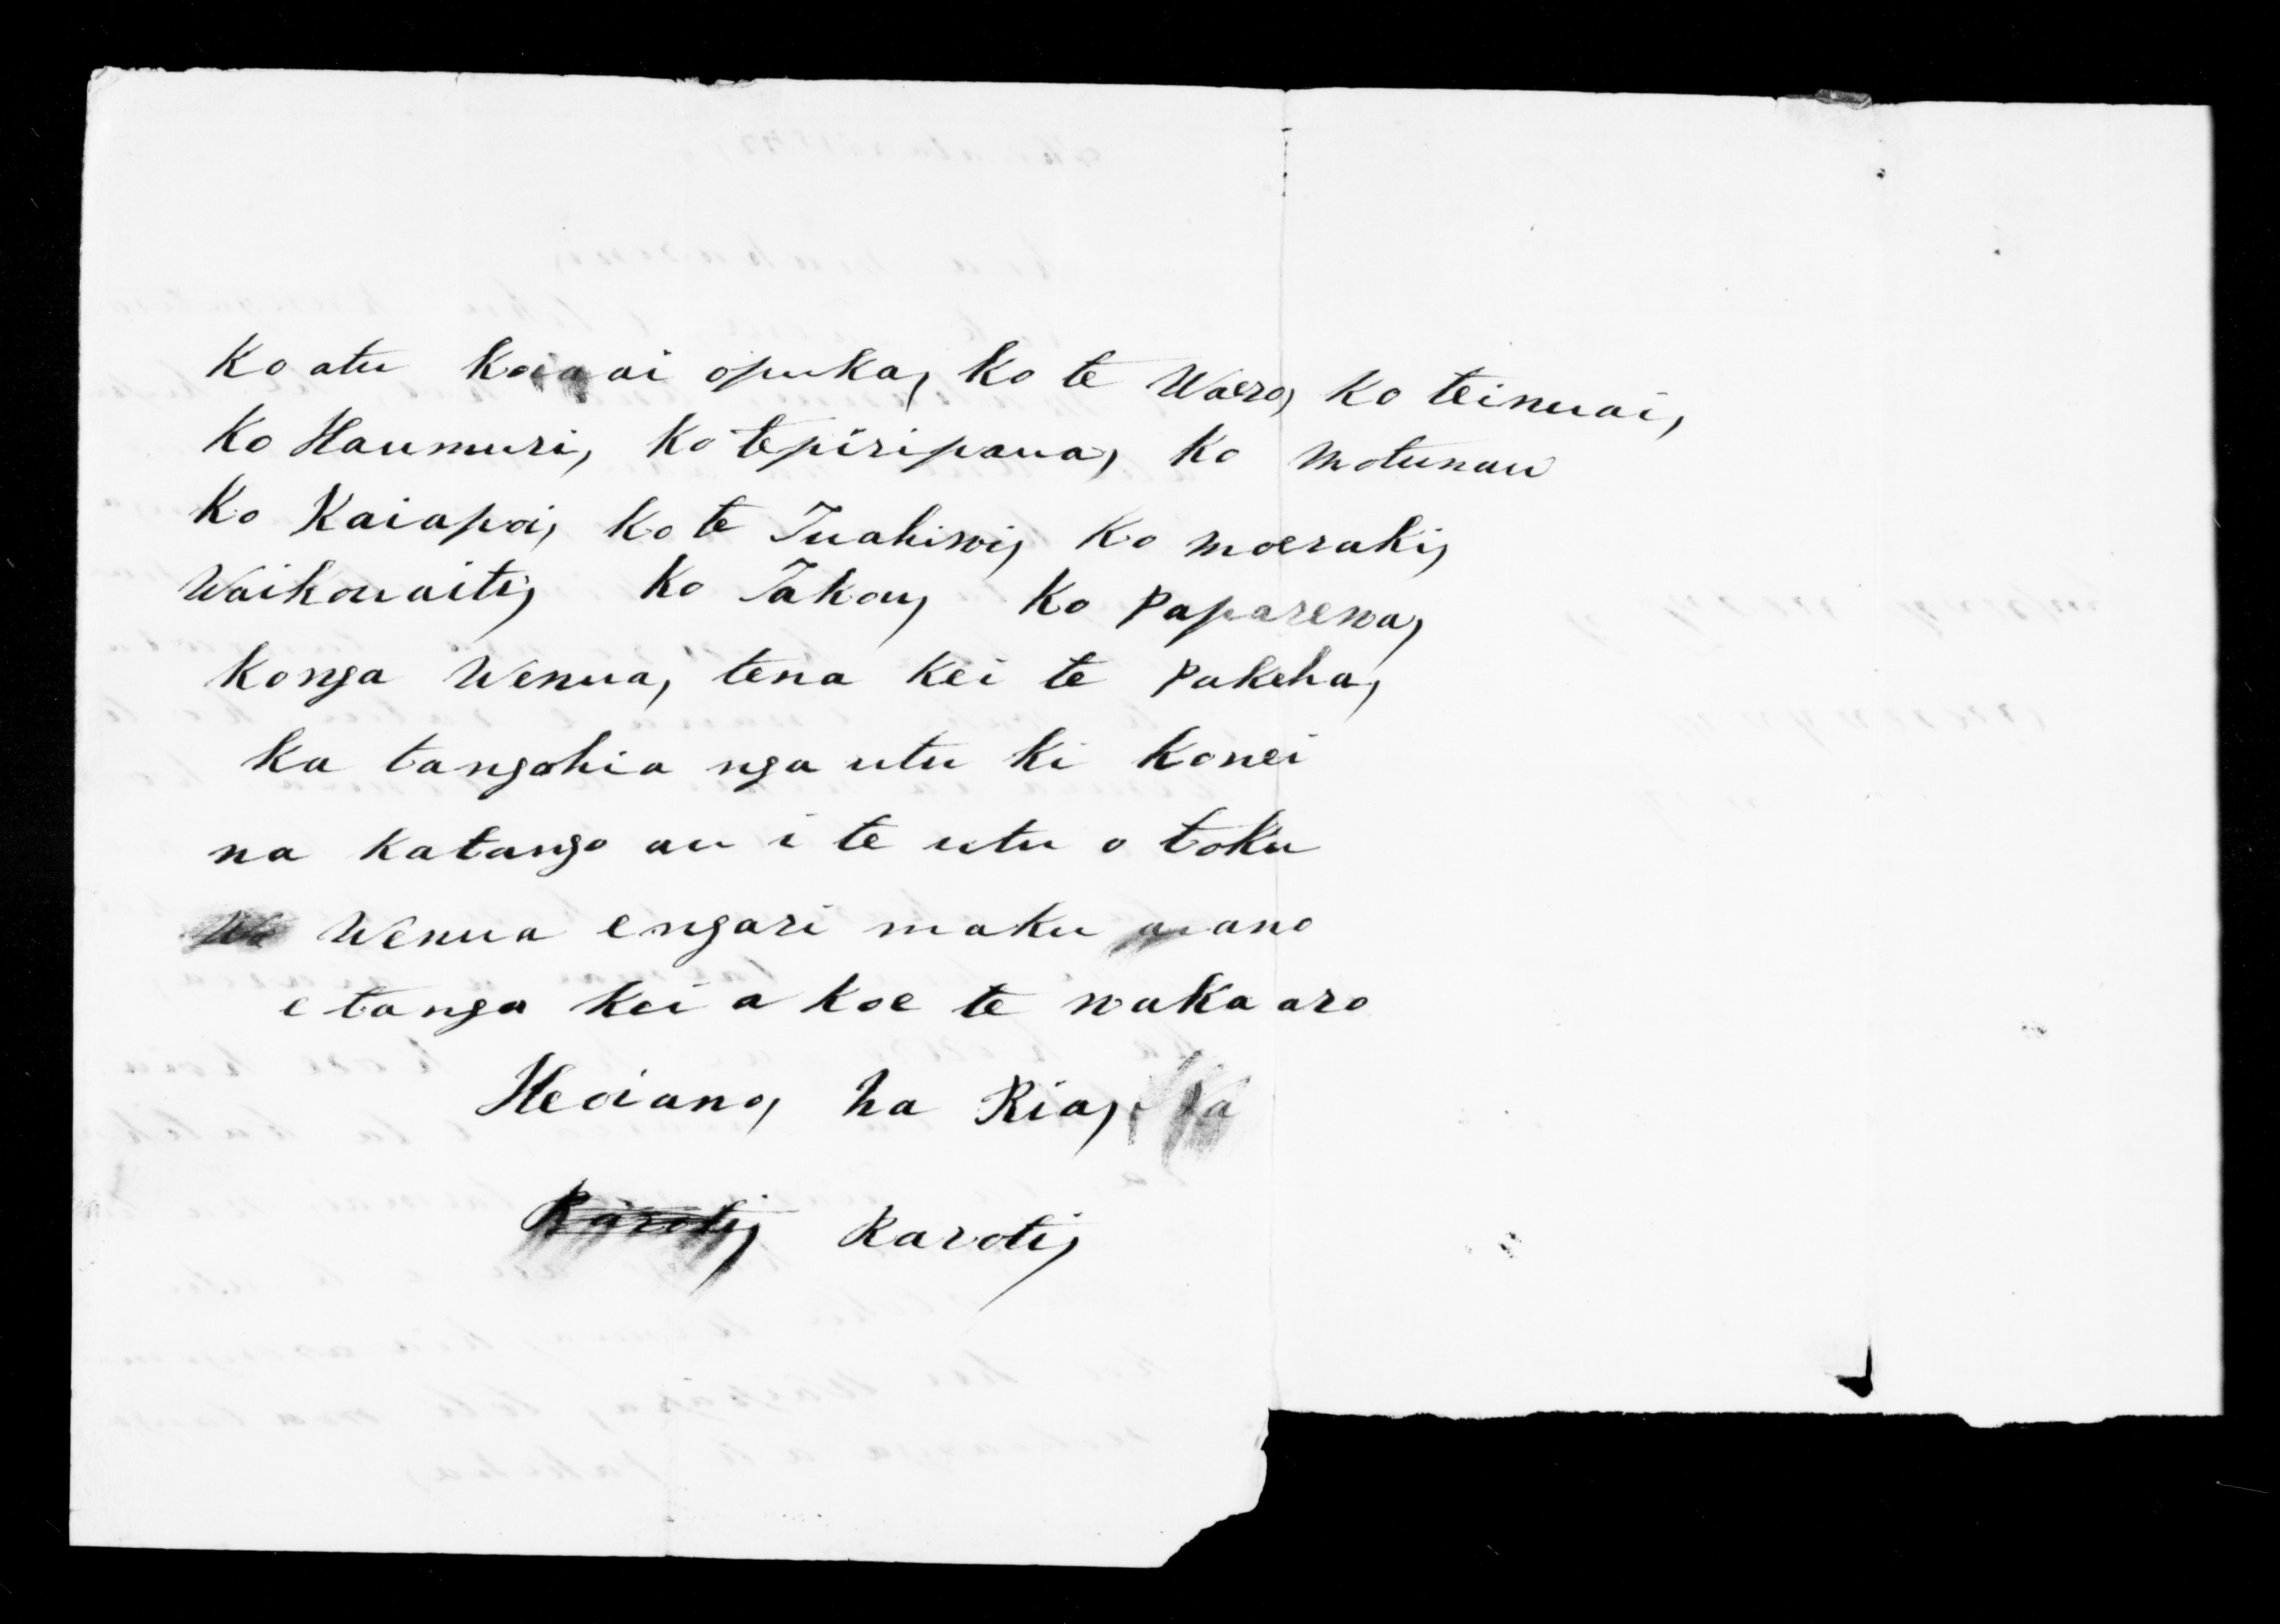 Ko atu ko opuka, ko te Waero, ko teinuai,
Ko Haumuri, Ko tepiripaua, ko motunau
Ko Kaiapoi, ko te Tuahiwi, ko moeraki,
Waikouaiti, Ko Takou, Ko paparewa,
konga Wenua, tena kei te pakeha,
ka tangohia nga utu ki konei
na katango au i te utu o toku
We Wenua engari maku ano
e tango kei a koe te wakaaro
Heoiano, ha Ria,
Karoti, Karoti,